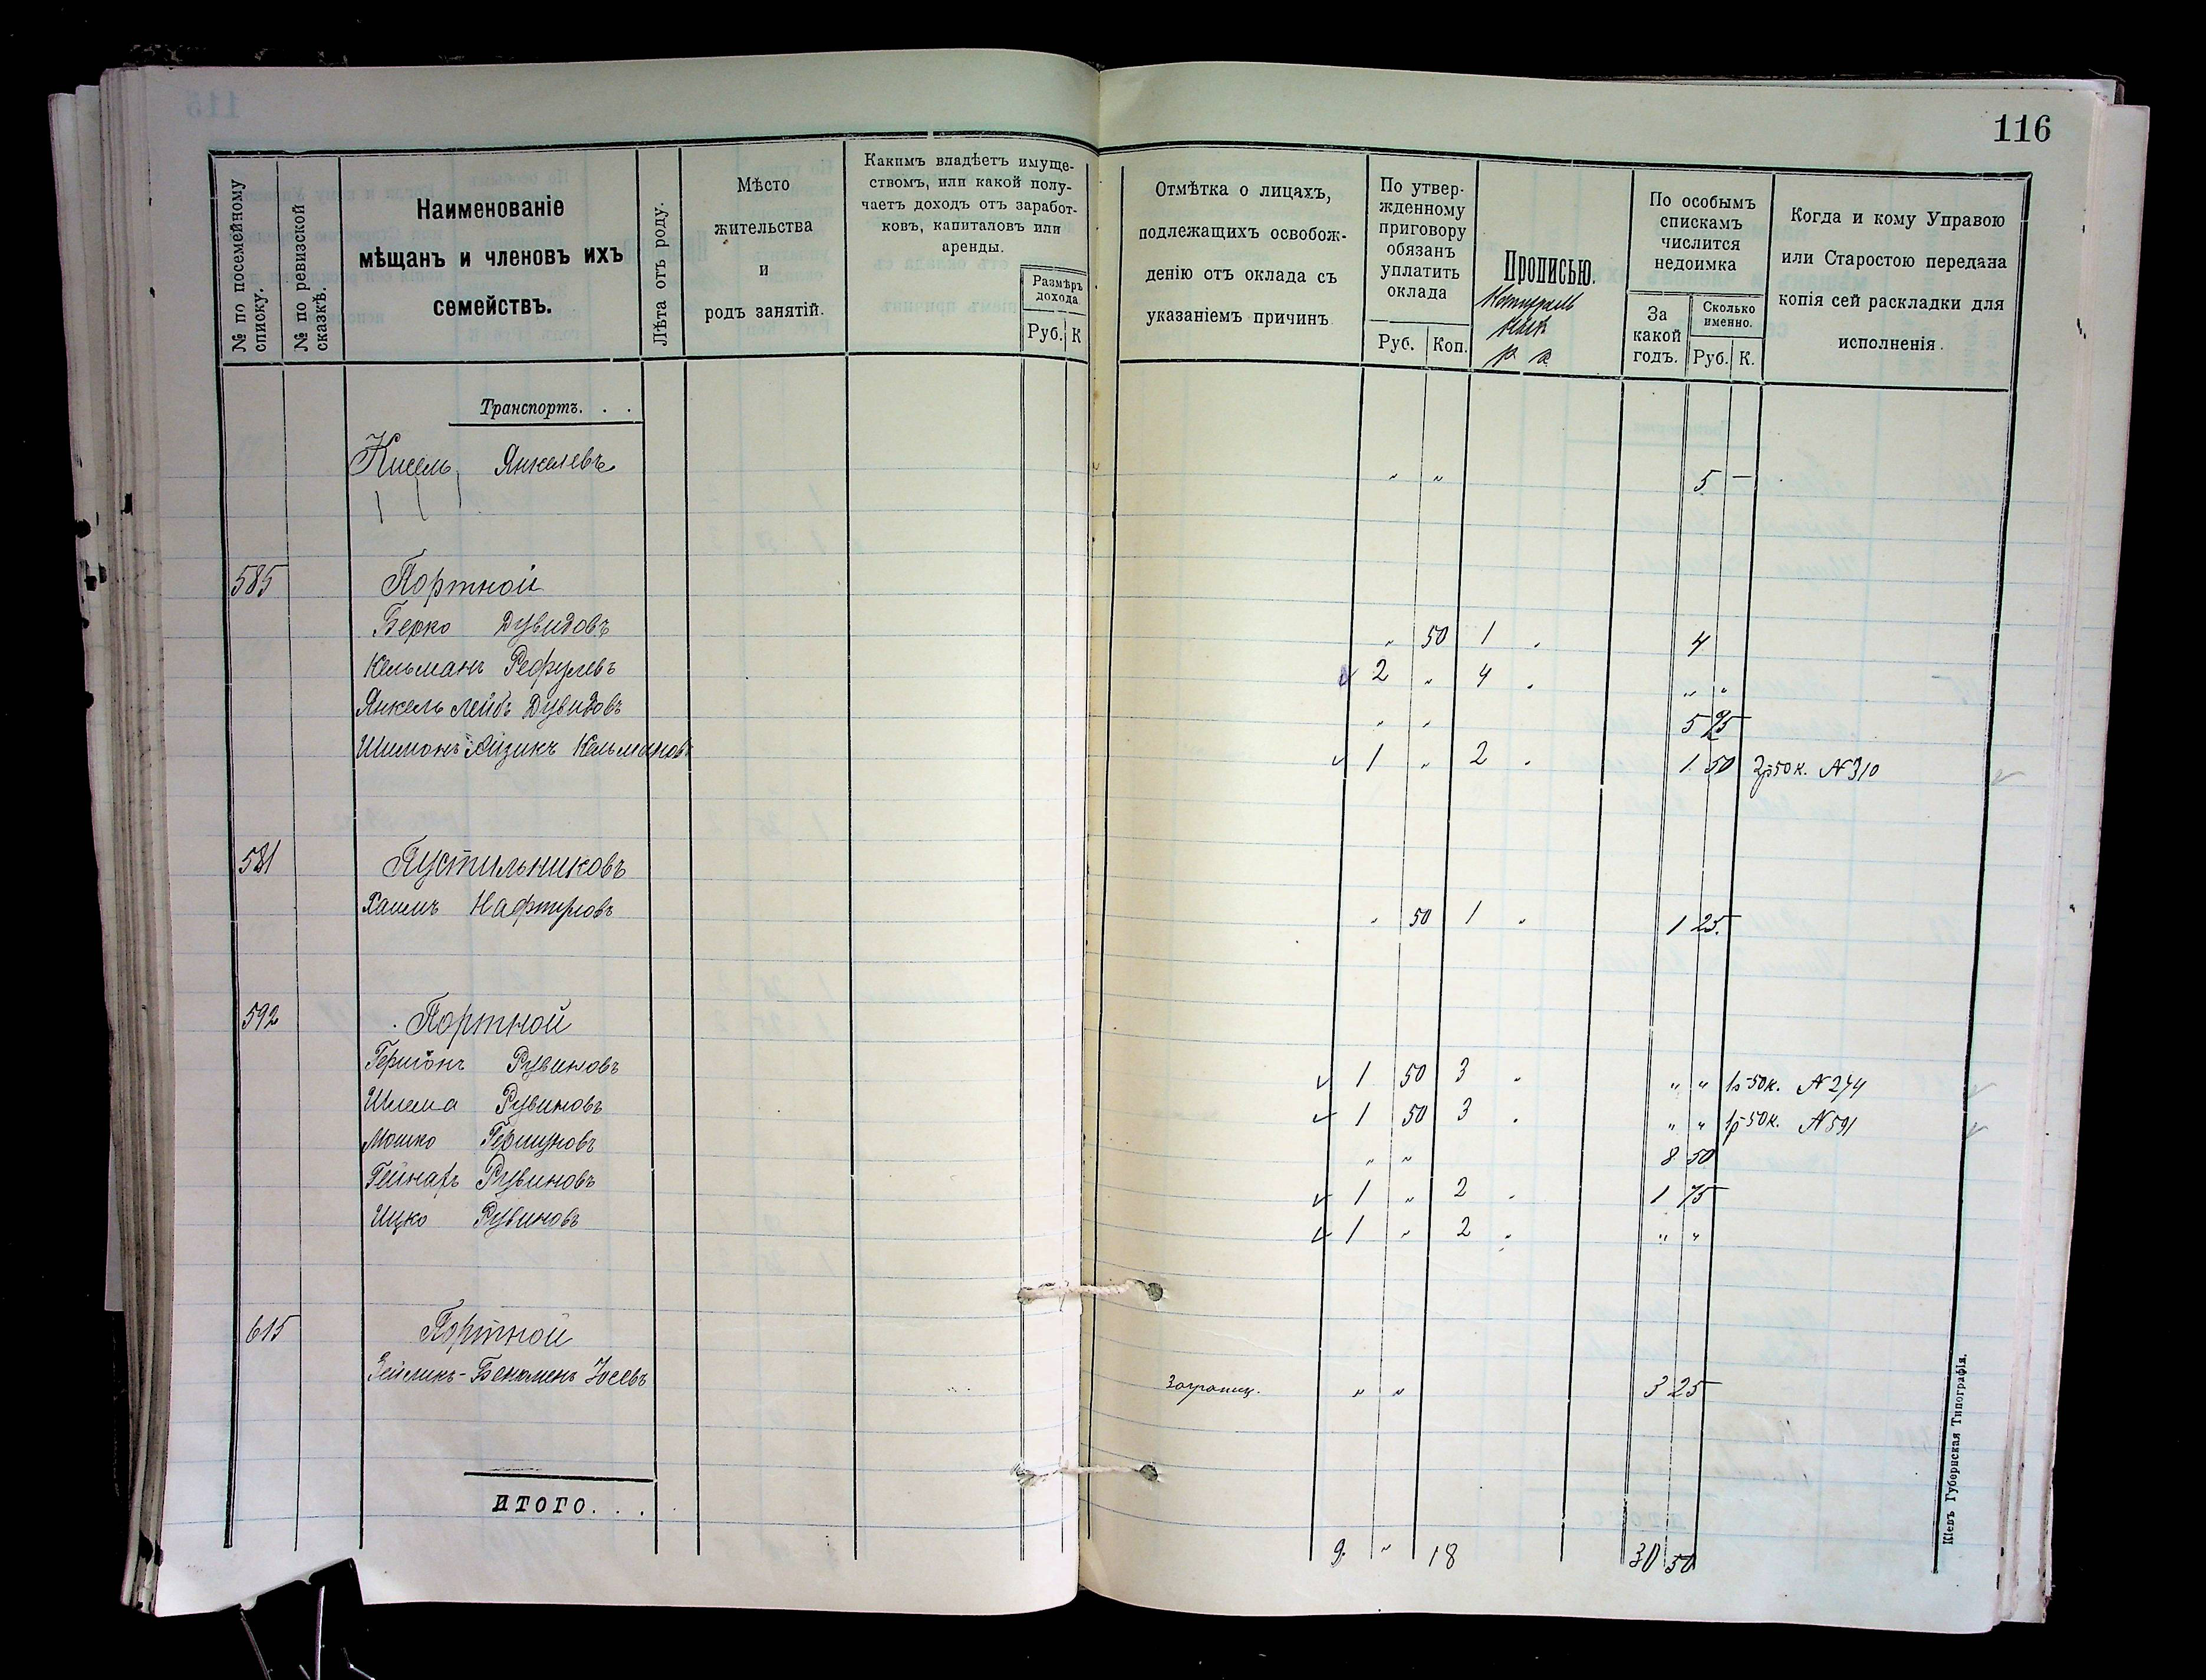 116
№ по посемейному списку.
№ по ревизской сказкѣ.
Наименованіе
мѣщанъ и членовъ ихъ
семействъ.
Лѣта отъ роду.
Мѣсто
жительства
и
родъ занятій.
Какимъ владѣетъ имуще-
ствомъ, или какой полу-
чаетъ доходъ отъ заработ-
ковъ, капиталовъ или
аренды.
Размѣръ
дохода
Руб. К
Отмѣтка о лицахъ,
подлежащихъ освобож-
денію отъ оклада съ
указаніемъ причинъ
По утвер-
жденному
приговору
обязанъ
уплатить
оклада
Руб. Коп.
Прописью.
р. к.
По особымъ
спискамъ
числится
недоимка
За
какой
годъ.
Сколько
именно.
Руб. К.
Когда и кому Управою
или Старостою передана
копія сей раскладки для
исполненія.
Транспортъ. . .
Кисель Янкелевъ " " 5 —
585 Портной
Берко Дувидовъ " 50 1 " 4
Кельманъ 2 " 4 " " "
Янкель Лейбъ Дувидовъ " " 5
Шимонъ Айзикъ Кельмановъ 1 " 2 " 1 50 2р50к. N310
581 Пустильниковъ
Хаимъ " 50 1 " 1 25
592 Портной
Гершонъ Рувиновъ 1 50 3 " " " 1р50к. N274
Шлема Рувиновъ 1 50 3 " " " 1р50к. N591
Мошко Гершуновъ " " 8 50
Рувиновъ 1 " 2 " 1 75
Ицко Рувиновъ 1 " 2 " " "
615 Портной
Іосевъ Заграниц. " " 3 25
ИТОГО. . . 9 " 18 30 50
Кіевъ Губернская Типографія.